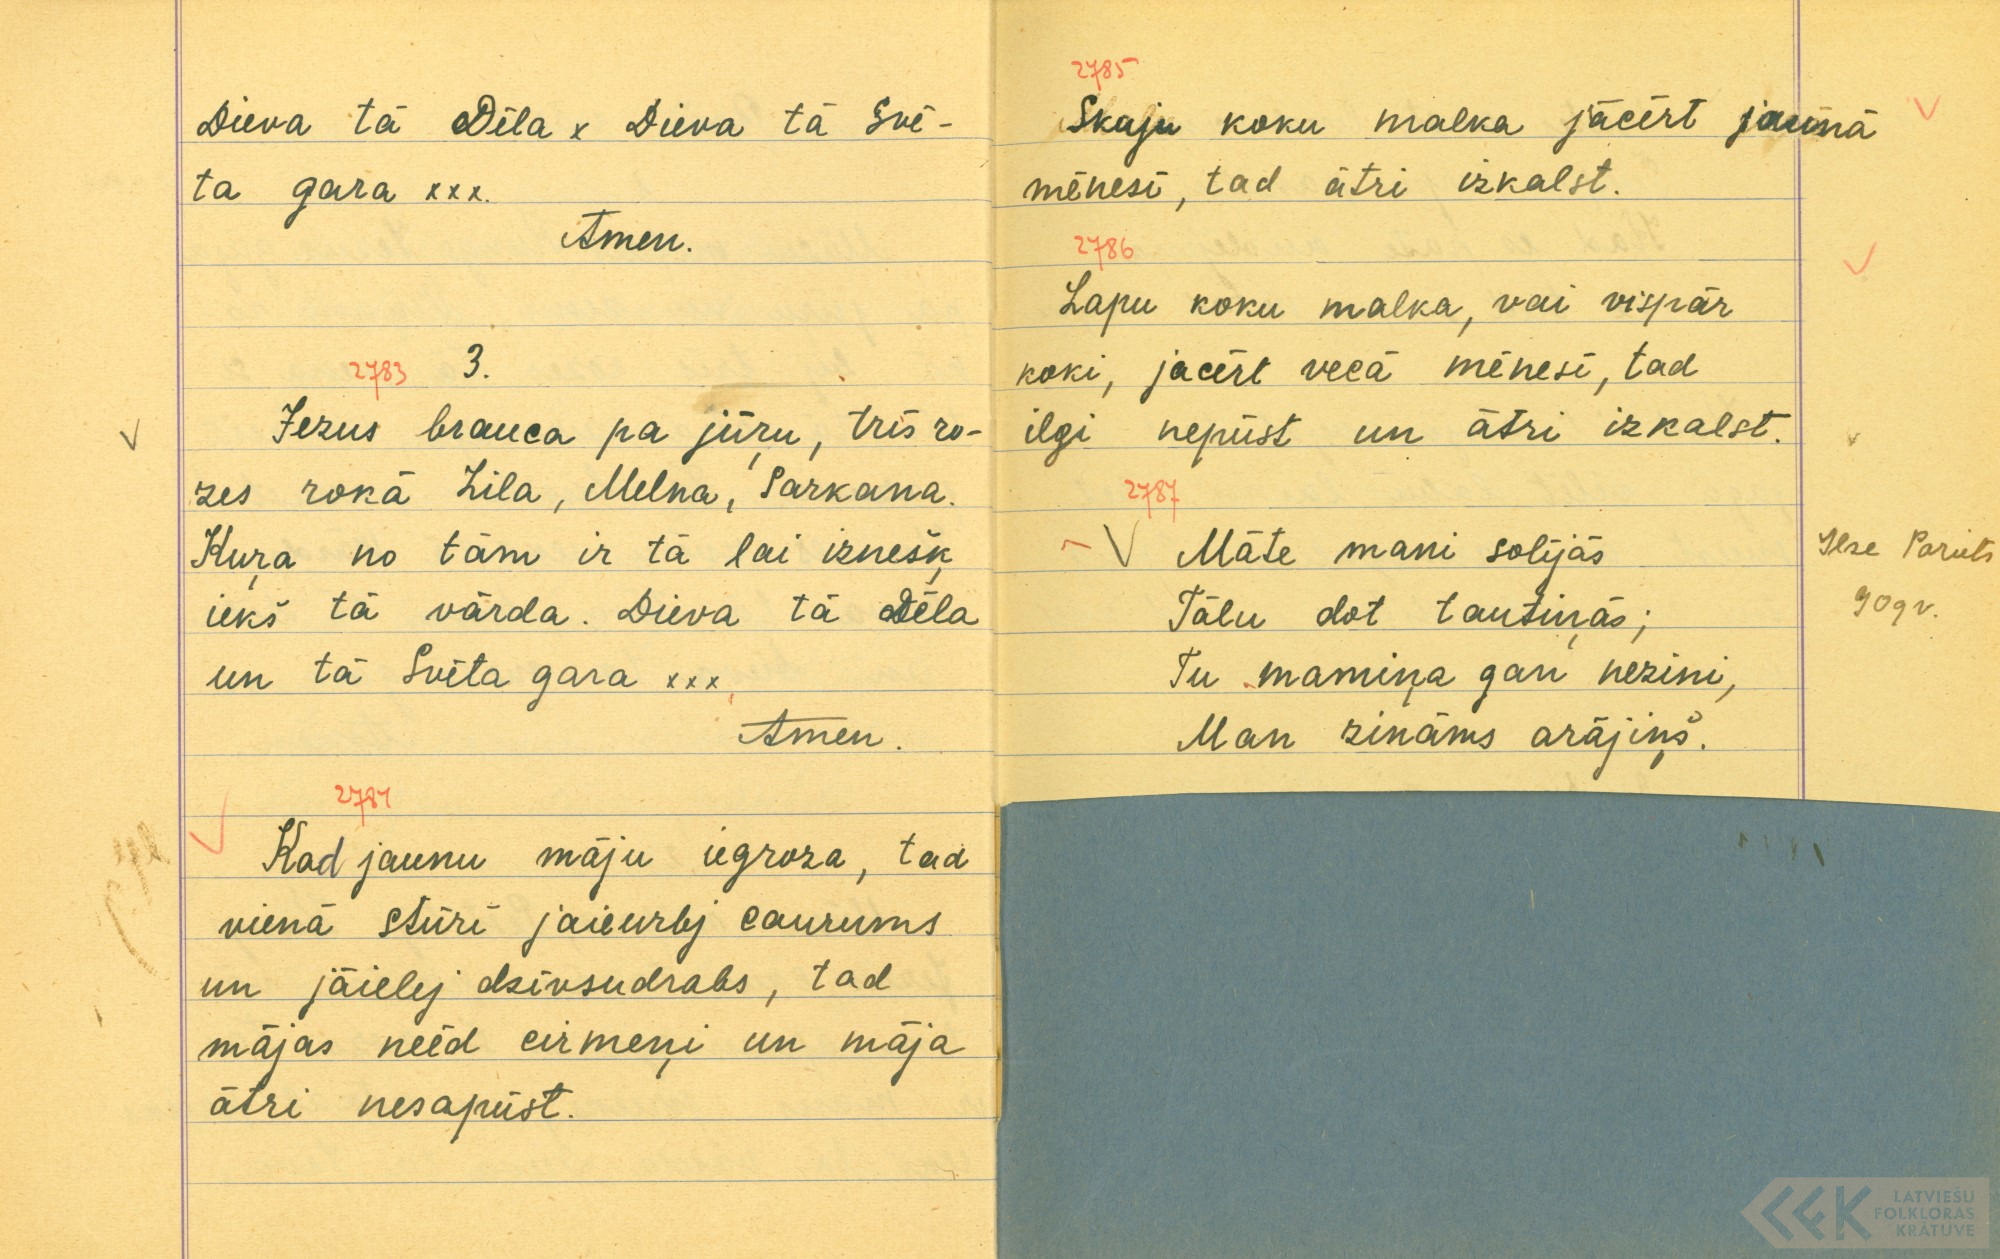 Dieva tā Dēla x Dieva tā Svē-
ta gara xxx.
Amen.
2783 3.
Jezus brauca pa jūŗu, trīs ro-
zes rokā Zila, Melna, Sarkana.
Kuŗa no tām ir tā lai iznešķ
iekš tā vārda. Dieva tā Dēla
un tā Svēta gara xxx
Amen.
2784
Kad jaunu māju iegroza, tad
vienā stūrī jaieurbj caurums
un jāielej dzīvsudrabs, tad
mājas neēd cirmeņi un māja
ātri nesapūst.
2785
Skuju koku malka jācērt jaunā
mēnesī, tad ātri izkalst.
2786
Lapu koku malka, vai vispār
koki, jacērt vecā mēnesī, tad
ilgi nepūst un ātri izkalst.
2787
Māte mani solījās
Tālu dot tautiņās;
Tu mamiņa gan nezini,
Man zināms arājiņš.
Ilze
909 v.
LATVIEŠU
FOLKLORAS
KRĀTUVE